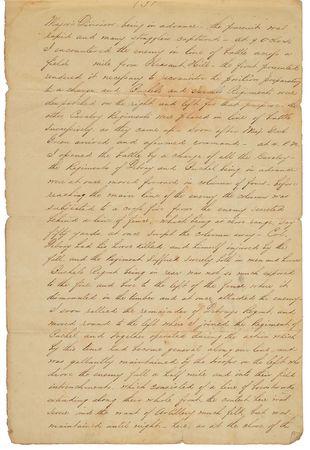 Major's Division being in advance - the pursuit was
rapid and many stragglers captured - At 9 O Clock
I encountered the enemy in line of battle across a
field mile from Pleasant Hill - the front presented
rendered it necessary to reconnoitre the position preparatory
to a charge and Buchel's and Regiments were
deposited on the right and left for that purpose - the
other Cavalry Regiments was placed in line of battle
successively as they came up - soon after Maj Genl
Green arrived and assumed command - at P.M.
I opened the battle by a charge of all the Cavalry -
the Regiments of Debray and Buchel being in advance
were at once moved forward in columns of fours - before
reaching the main line of the enemy the column was
subjected to a cross fire from the enemy secreted
behind a line of fence, which being at close range, say
fifty yards, at once swept the column away - Col
Debray had his horse killed and himself injured by the
fall and the Regiment suffered severely both in men and horses
Buchel's Regmt being in rear was not so much exposed
to the fire and bore to the left of the fence where it
dismounted in the timber and at once attacked the enemy
I soon rallied the remainder of Debray's Regmt and
moved round to the left where I joined the Regiment of
Buchel and together operated during the action which
by this time had become general along our line and
was gallantly maintained by the troops on the left who
drove the enemy full a half mile and into their first
intrenchments which consisted of a line of
extending along their whole front, the contest here was
severe and the want of Artillery much felt, but was
maintained until night - here, as at the close of the